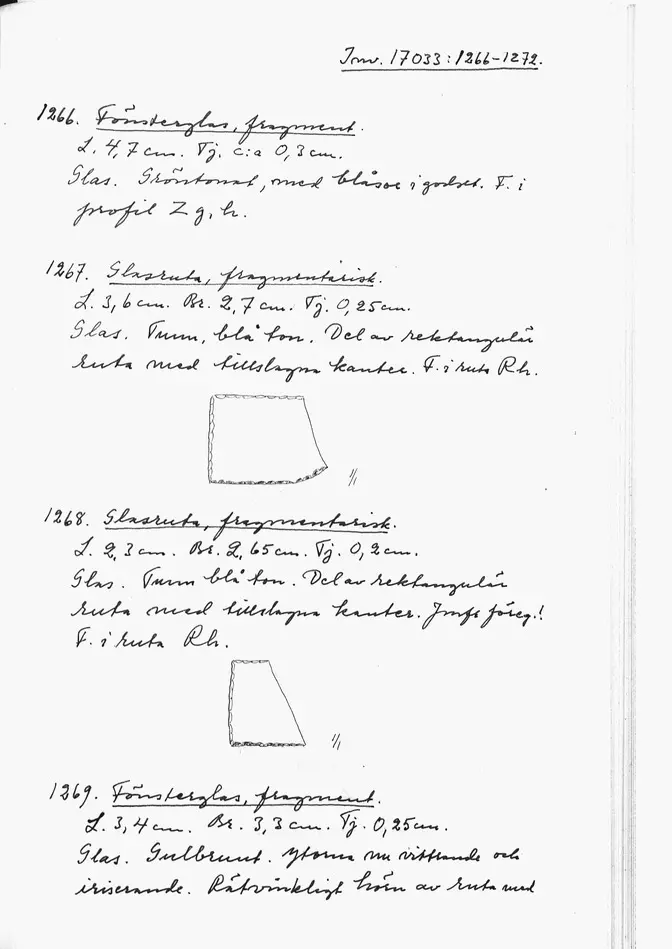 Inv. 17033:1266-1272.
1266. Fönsterglas, fragment.
L. 4,7 cm. Tj. c:a 0,3 cm.
Glas. Gröntonat, med blåsor i godset. F. i
profil Z g, h.
1267. Glasruta, fragmentarisk.
L. 3,6 cm. Br. 2,7 cm. Tj. 0,25 cm.
Glas. Tunn, blå ton. Del av rektangulär
ruta med tillslagna kanter. F. i ruta Rh.
1/1
1268. Glasruta, fragmentarisk.
L. 2,3 cm. Br. 2,65 cm. Tj. 0,2 cm.
Glas. Tunn blå ton. Del av rektangulär
ruta med tillslagna kanter. Jmfr föreg.!
F. i ruta Rh.
1/1
1269. Fönsterglas, fragment.
L. 3,4 cm. Br. 3,3 cm. Tj. 0,25 cm.
Glas. Gulbrunt. Ytorna nu vittrande och
iriserande. Rätvinkligt hörn av ruta med